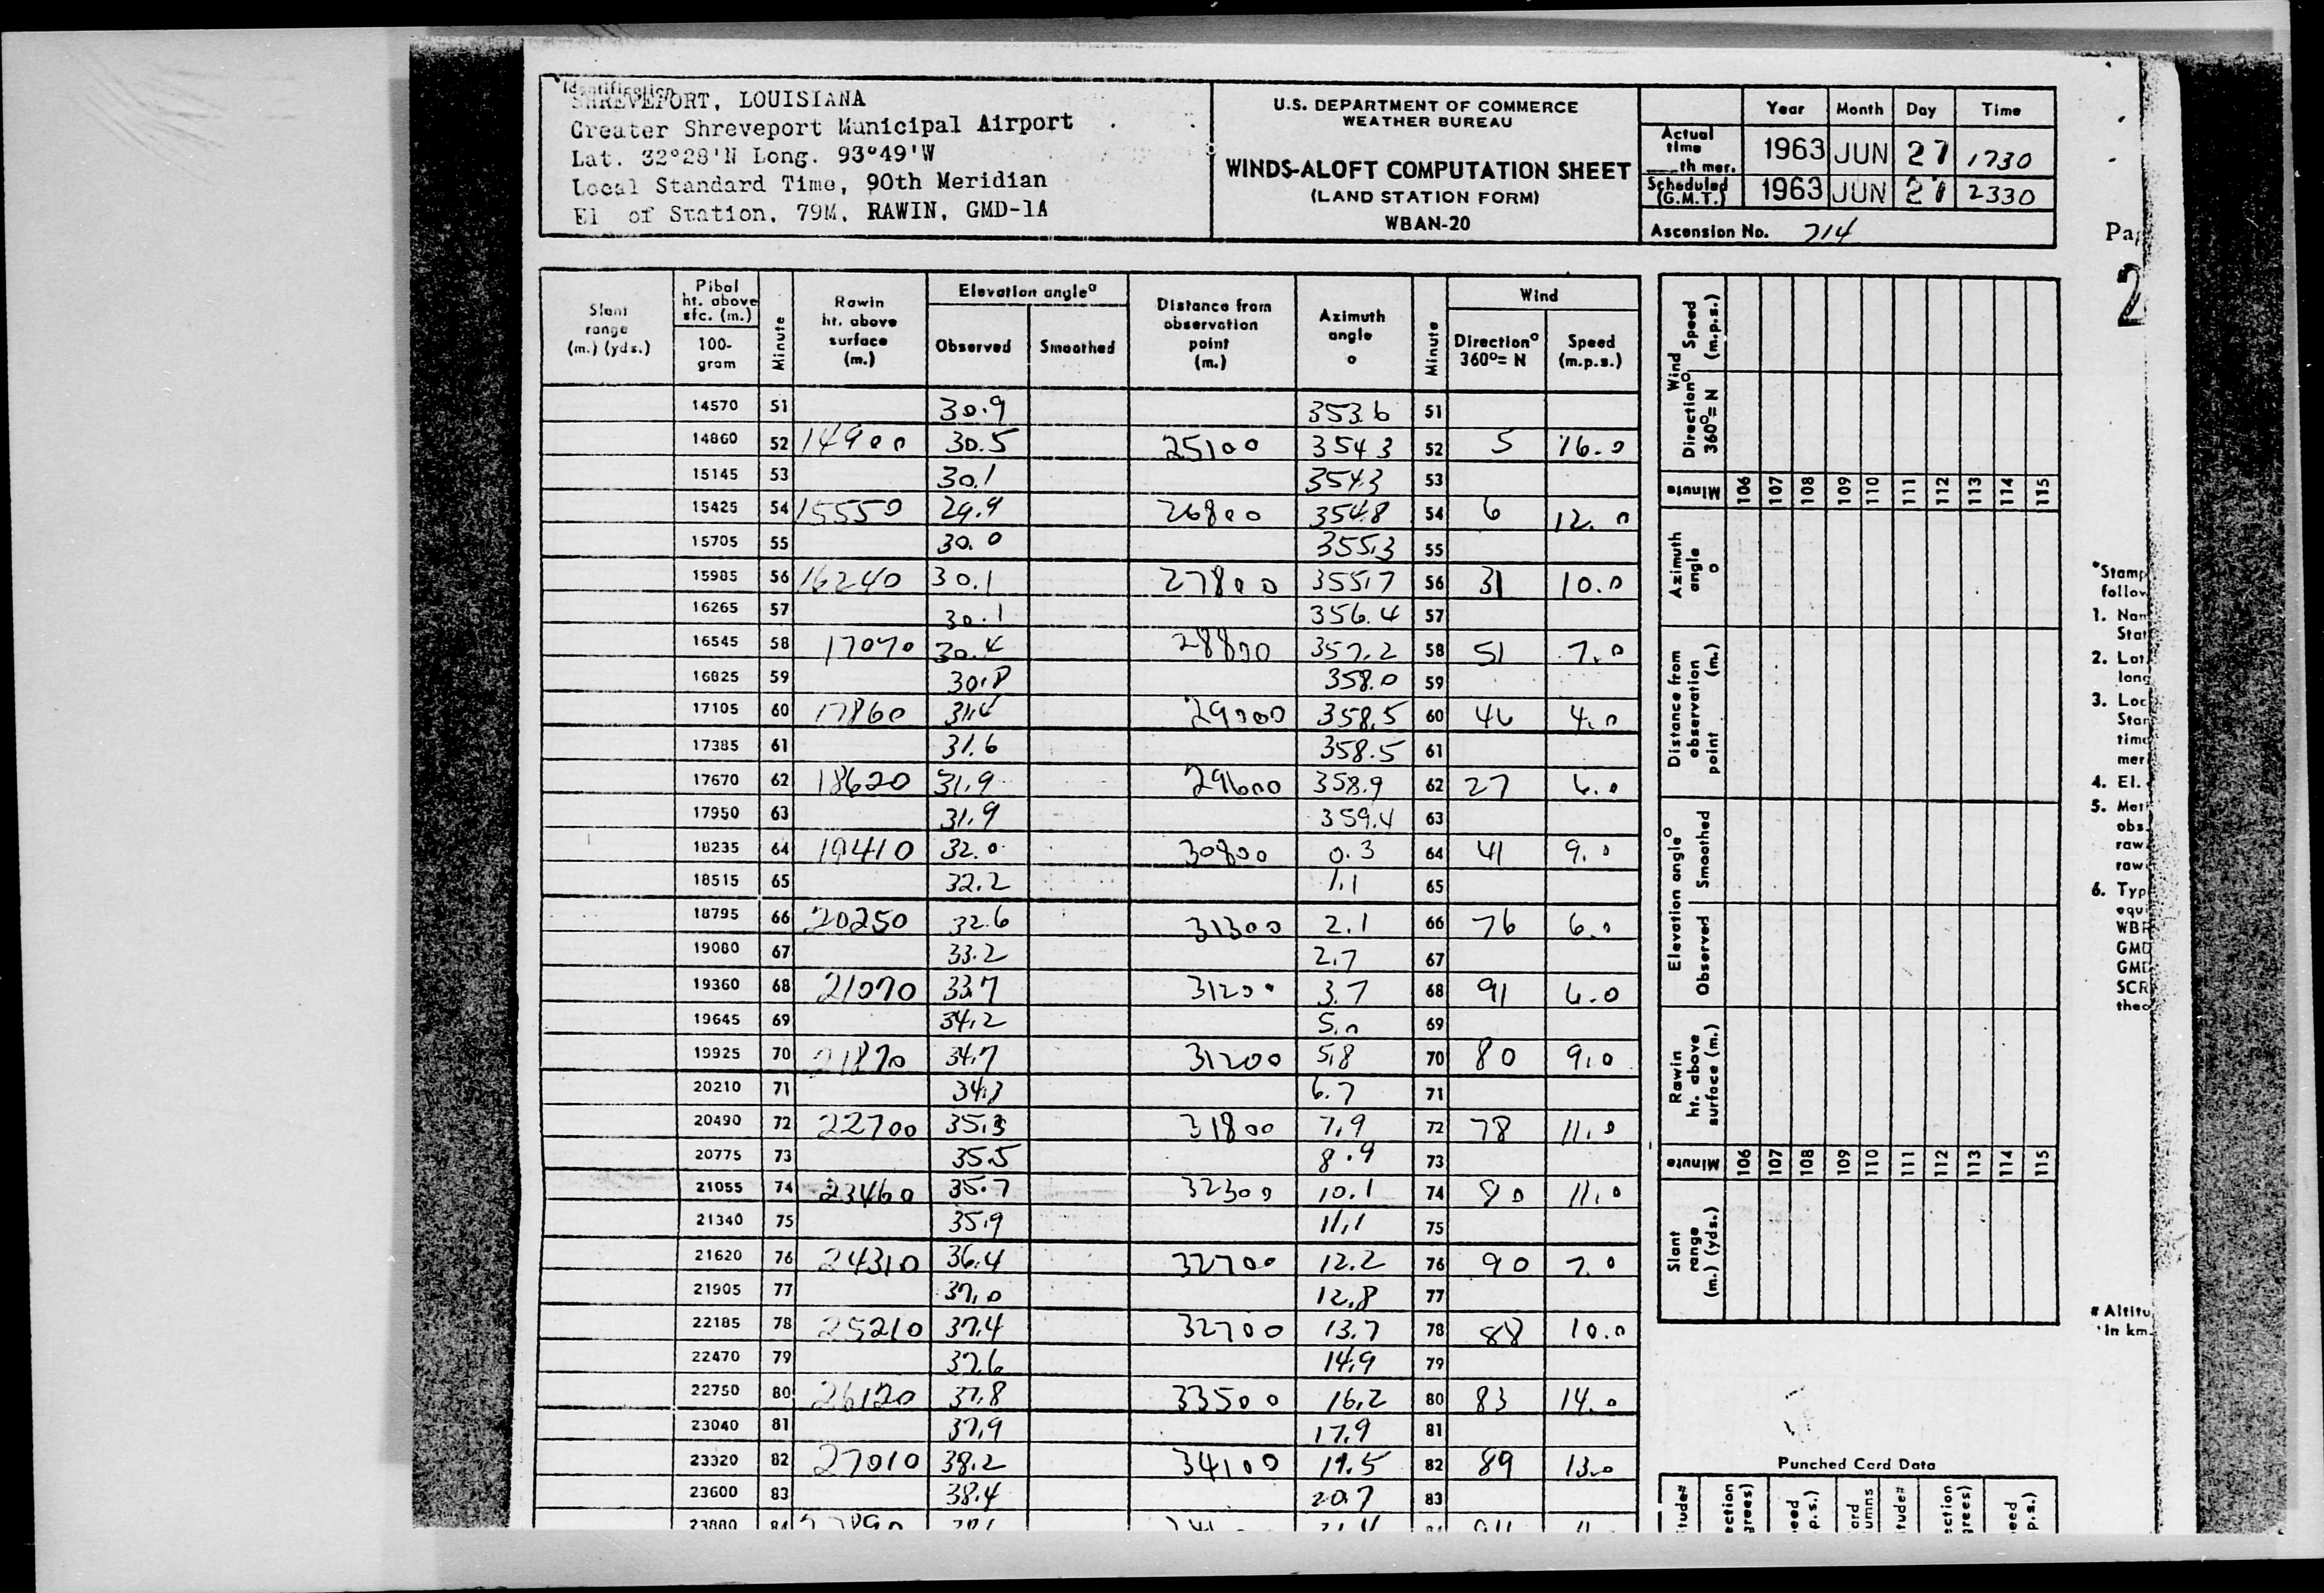 Identification
SHREVEPORT, LOUISIANA
Greater Shreveport Municipal Airport
Lat. 32°28'N Long. 93°49'W
Local Standard Time, 90th Meridian
El of Station, 79M, RAWIN, GMD-1A
U.S. DEPARTMENT OF COMMERCE
WEATHER BUREAU
WINDS-ALOFT COMPUTATION SHEET
(LAND STATION FORM)
WBAN-20
Year Month Day Time
Actual time ___th mer. 1963 JUN 27 1730
Scheduled (G.M.T.) 1963 JUN 27 2330
Ascension No. 714
Slant range (m.) (yds.)
Pibal ht. above sfc. (m.)
100-gram
Minute
Rawin ht. above surface (m.)
Elevation angle°
Observed Smoothed
Distance from observation point (m.)
Azimuth angle °
Minute
Wind
Direction° 360°= N
Speed (m.p.s.)
14570 51 30.9 353.6 51
14860 52 14900 30.5 25100 354.3 52 5 16.0
15145 53 30.1 354.3 53
15425 54 15550 29.9 26800 354.8 54 6 12.0
15705 55 30.0 355.3 55
15985 56 16240 30.1 27800 355.7 56 31 10.0
16265 57 30.1 356.4 57
16545 58 17070 30.4 28800 357.2 58 51 7.0
16825 59 30.8 358.0 59
17105 60 17860 31.4 29000 358.5 60 46 4.0
17385 61 31.6 358.5 61
17670 62 18620 31.9 29600 358.9 62 27 6.0
17950 63 31.9 359.4 63
18235 64 19410 32.0 30800 0.3 64 41 9.0
18515 65 32.2 1.1 65
18795 66 20250 32.6 31300 2.1 66 76 6.0
19080 67 33.2 2.7 67
19360 68 21070 33.7 31200 3.7 68 91 6.0
19645 69 34.2 5.0 69
19925 70 21870 34.7 31200 5.8 70 80 9.0
20210 71 6.7 71
20490 72 22700 35.3 31800 7.9 72 78 11.0
20775 73 35.5 8.9 73
21055 74 23460 35.7 32300 10.1 74 11.0
21340 75 35.9 11.1 75
21620 76 24310 36.4 32700 12.2 76 90 7.0
21905 77 37.0 12.8 77
22185 78 25210 37.4 32700 13.7 78 88 10.0
22470 79 37.6 14.9 79
22750 80 26120 37.8 33500 16.2 80 83 14.0
23040 81 37.9 17.9 81
23320 82 27010 38.2 34100 19.5 82 89 13.0
23600 83 38.4 20.7 83
23880 84
Wind
Direction° 360°= N
Speed (m.p.s.)
Minute 106 107 108 109 110 111 112 113 114 115
Azimuth angle °
Distance from observation point (m.)
Elevation angle°
Observed Smoothed
Rawin ht. above surface (m.)
Minute 106 107 108 109 110 111 112 113 114 115
Slant range (m.) (yds.)
Punched Card Data
Pa
2
*Stamp
follow
1. Nam
Stat
2. Lat.
long
3. Loc
Stan
time
mer
4. El.
5. Met
obs.
raw
raw
6. Typ
equi
WBR
GMD
GMD
SCR
theo
# Altitu
In km.